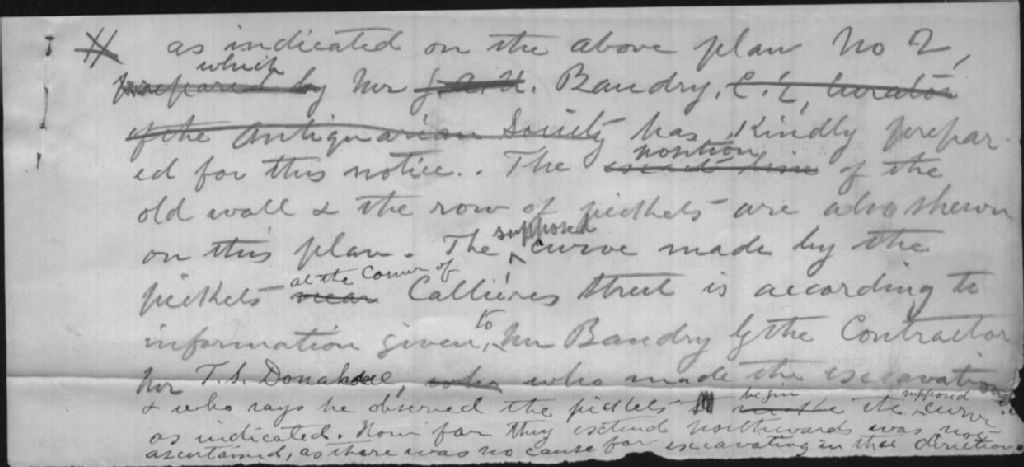 as indicated on the above plan No 2,
which
prepared by Mr J.A.U. Baudry, C.E, Curator
of the Antiquarian Society has kindly prepar-
position
ed for this notice.. The exact line of the
old wall & the row of pickets are also shewn
supposed
on this plan. The curve made by the
at the Corner of
pickets near Callières Street is according to
to
information given, Mr Baudry by the Contractor
Mr T.S. Donahue, who who made the excavations
begin supposed
& who says he observed the pickets the curve
as indicated. How far they extend northward was not
ascertained, as there was no cause for excavating in that direction